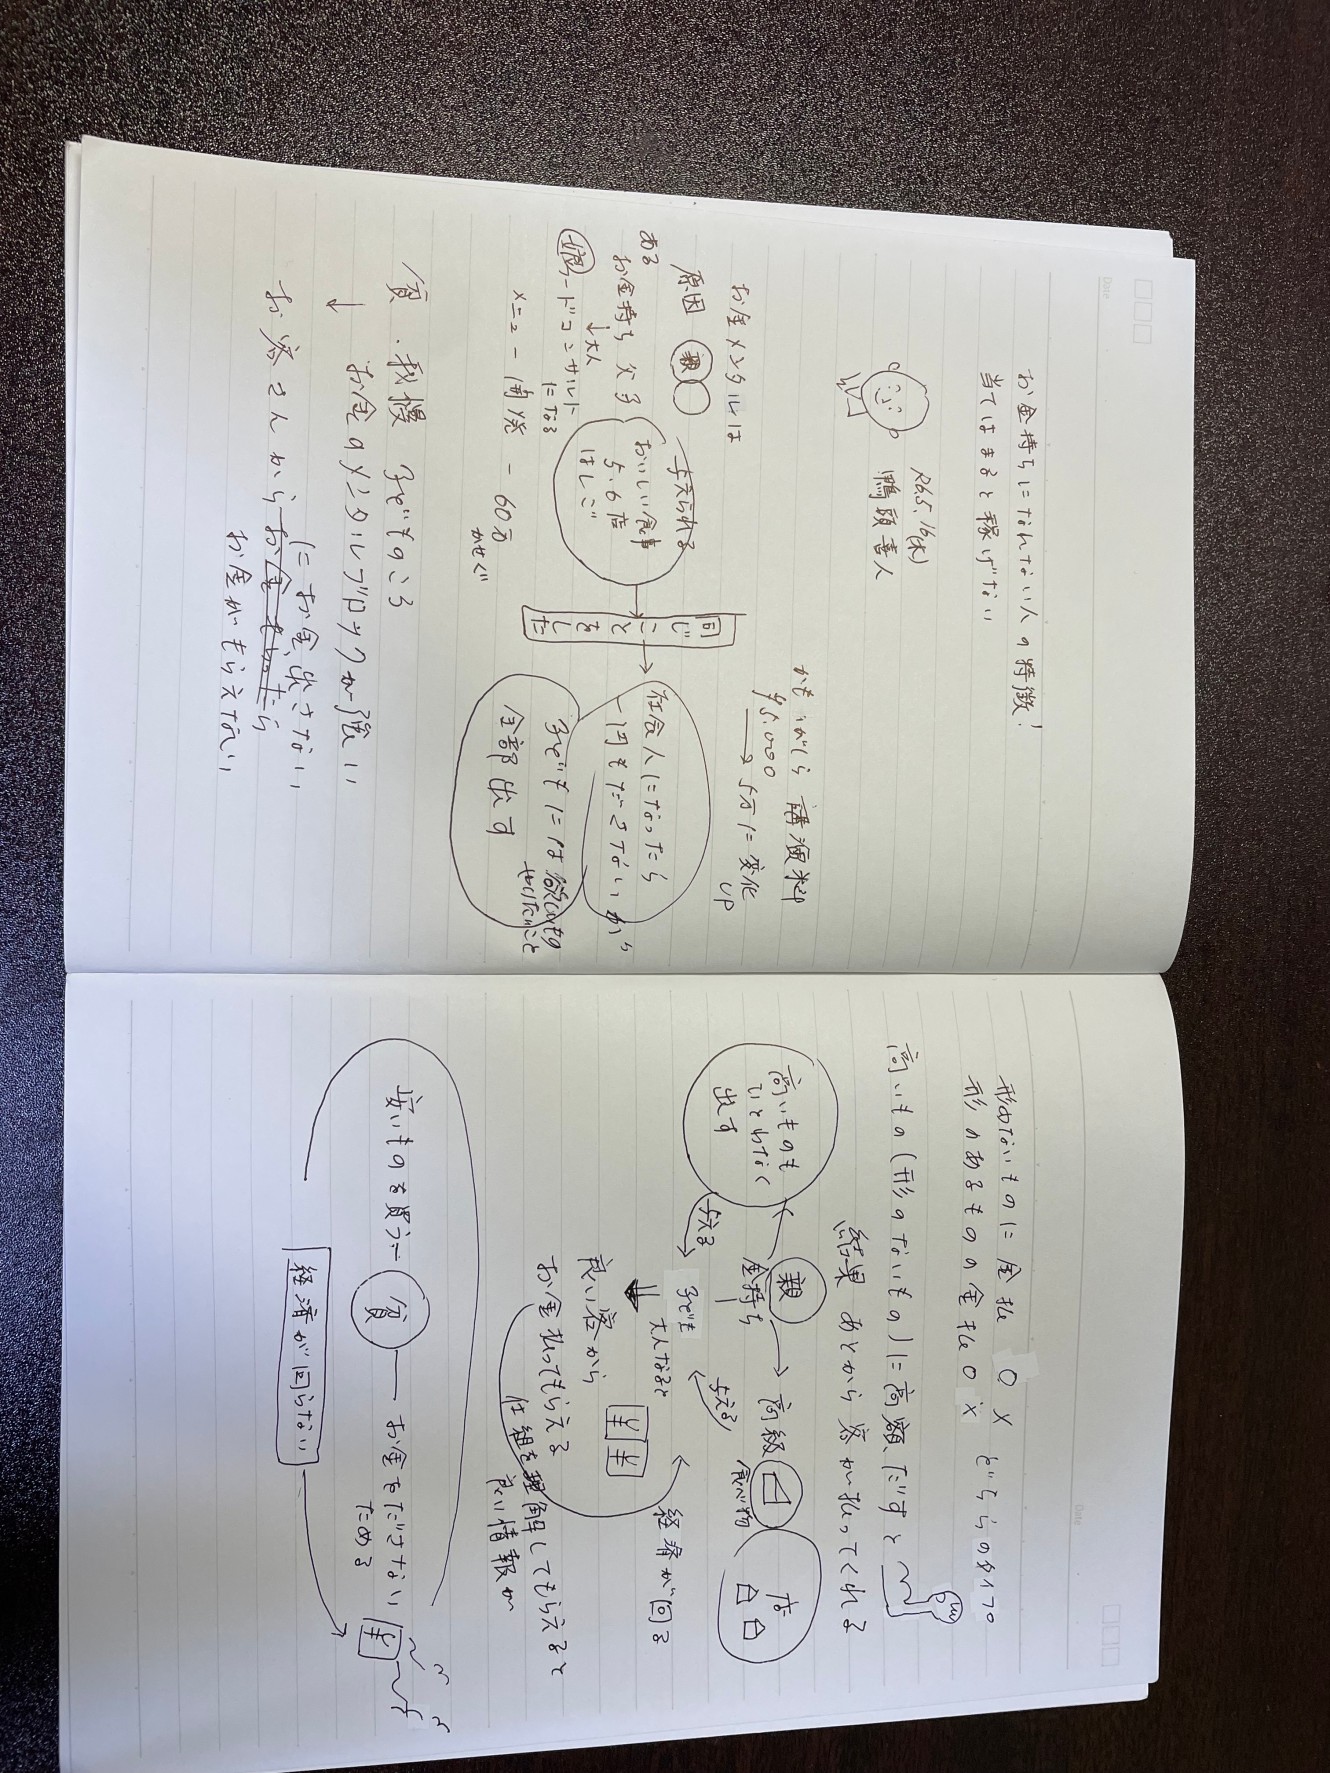 お金持ちになれない人の特徴!
当てはまると稼げない
R6.5.16(木)
鴨頭嘉人
かもがしら 講演料
¥5,000 → 5万に変化
UP
お金メンタルは
原因 親
与えられる
ある
お金持ち 父 子
おいしい食事
5、6店
はしご
↓大人
フードコンサルト
になる
メニュー開発 - 60万
かせぐ
同じことをした
社会人になったら
一円もださないから
子どもには欲しいもの
やりたいこと
全部出す
貧・我慢 子どものころ
お金のメンタルブロックが強い
↓
にお金、出さない
お客さんからお金もらったら
お金がもらえない
Date
形のないものに金払 O X どちらのタイプ
形のあるものの金払 O X
高いもの(形のないもの)に高額、だすと
結果 あとから客が払ってくれる
高いものも
いとわなく
出す
親
金持ち
高級
食べ物
な
与える
子ども
与える
大人なると
良い客から
お金払ってもらえる
¥ ¥
経済が回る
仕組を理解してもらえると
良い情報が
安いものを買う=
貧
お金をださない
ためる
¥
経済が回らない
Date